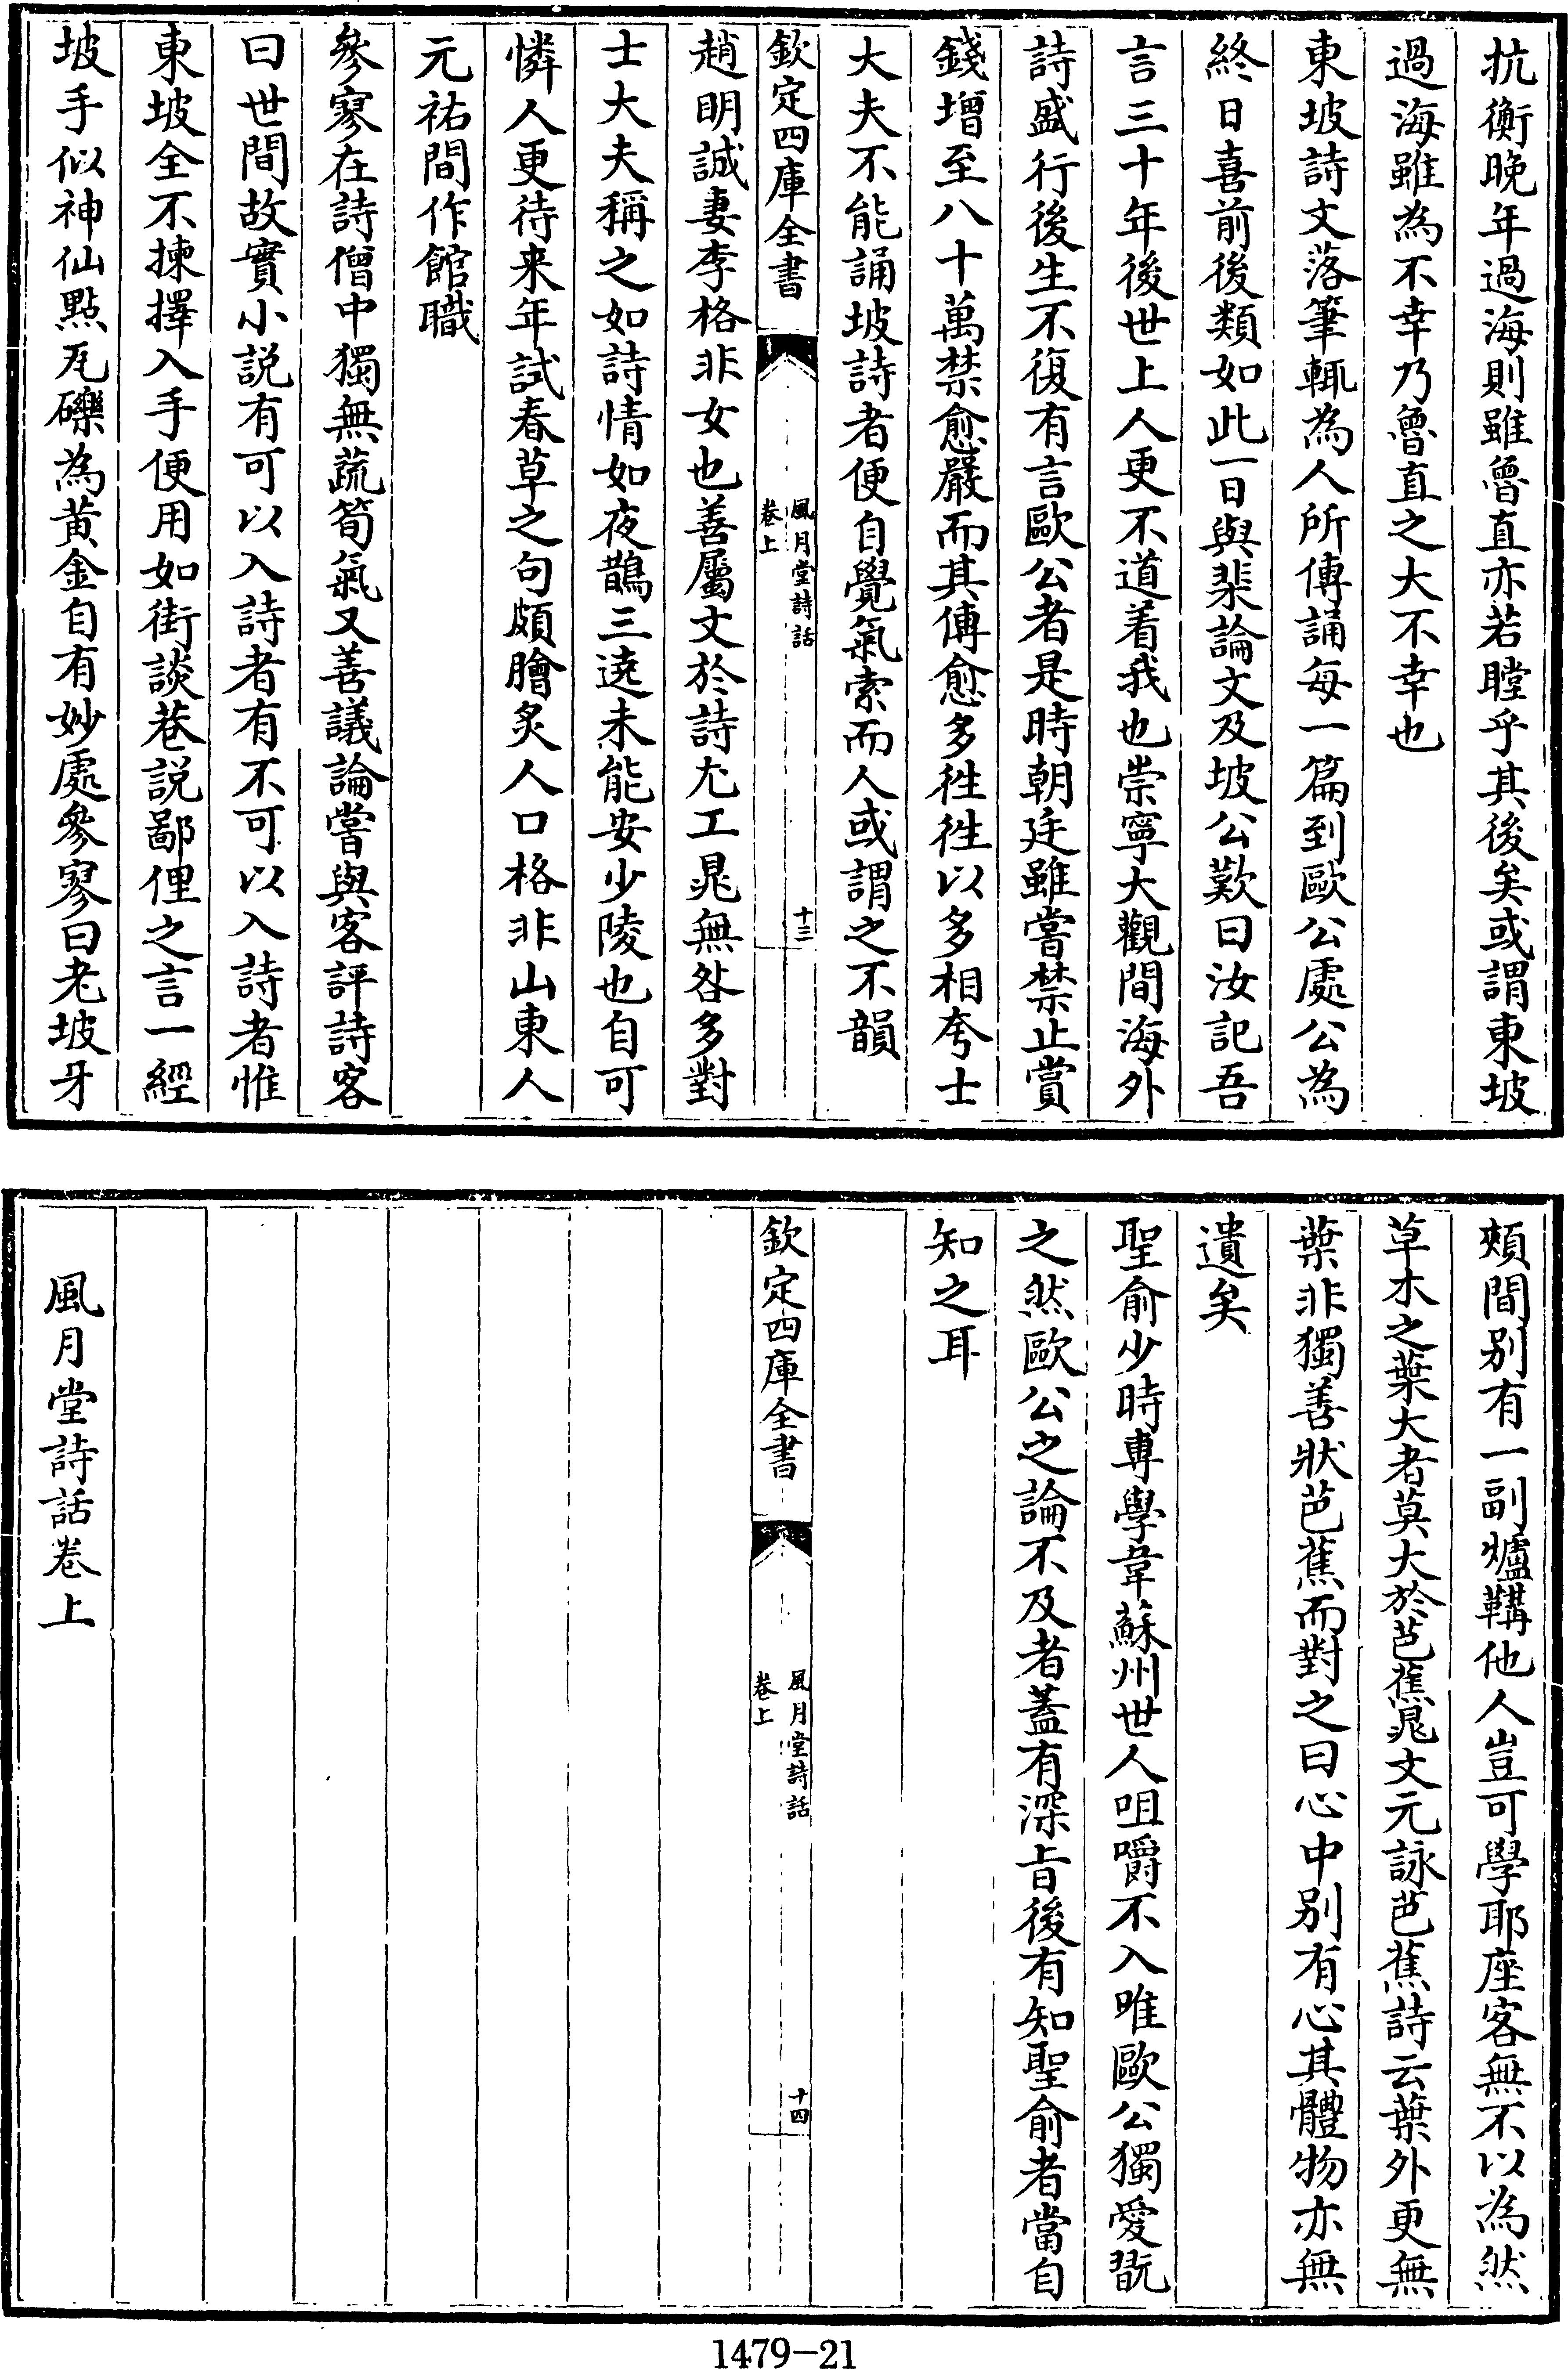 抗衡晚年過海則雖魯直亦若瞠乎其後矣或謂東坡
過海雖為不幸乃魯直之大不幸也
東坡詩文落筆輒為人所傳誦每一篇到歐公處公為
終日喜前後類如此一日與棐論文及坡公歎曰汝記吾
言三十年後世上人更不道着我也崇寧大觀間海外
詩盛行後生不復有言歐公者是時朝廷雖嘗禁止賞
錢增至八十萬禁愈嚴而其傳愈多徃徃以多相夸士
大夫不能誦坡詩者便自覺氣索而人或謂之不韻
欽定四庫全書
風月堂詩話
卷上
十三
趙明誠妻李格非女也善屬文於詩尤工晁無咎多對
士大夫稱之如詩情如夜鵲三遶未能安少陵也自可
憐人更待来年試春草之句頗膾炙人口格非山東人
元祐間作館職
參寥在詩僧中獨無蔬筍氣又善議論嘗與客評詩客
曰世間故實小説有可以入詩者有不可以入詩者惟
東坡全不揀擇入手便用如街談巷説鄙俚之言一經
坡手似神仙點瓦礫為黃金自有妙處參寥曰老坡牙
頰間别有一副爐鞲他人豈可學耶座客無不以為然
草木之葉大者莫大於芭蕉晁文元詠芭蕉詩云葉外更無
葉非獨善狀芭蕉而對之曰心中别有心其體物亦無
遺矣
聖俞少時專學韋蘇州世人咀嚼不入唯歐公獨愛翫
之然歐公之論不及者蓋有深旨後有知聖俞者當自
知之耳
欽定四庫全書
風月堂詩話
卷上
十四
風月堂詩話卷上
1479-21